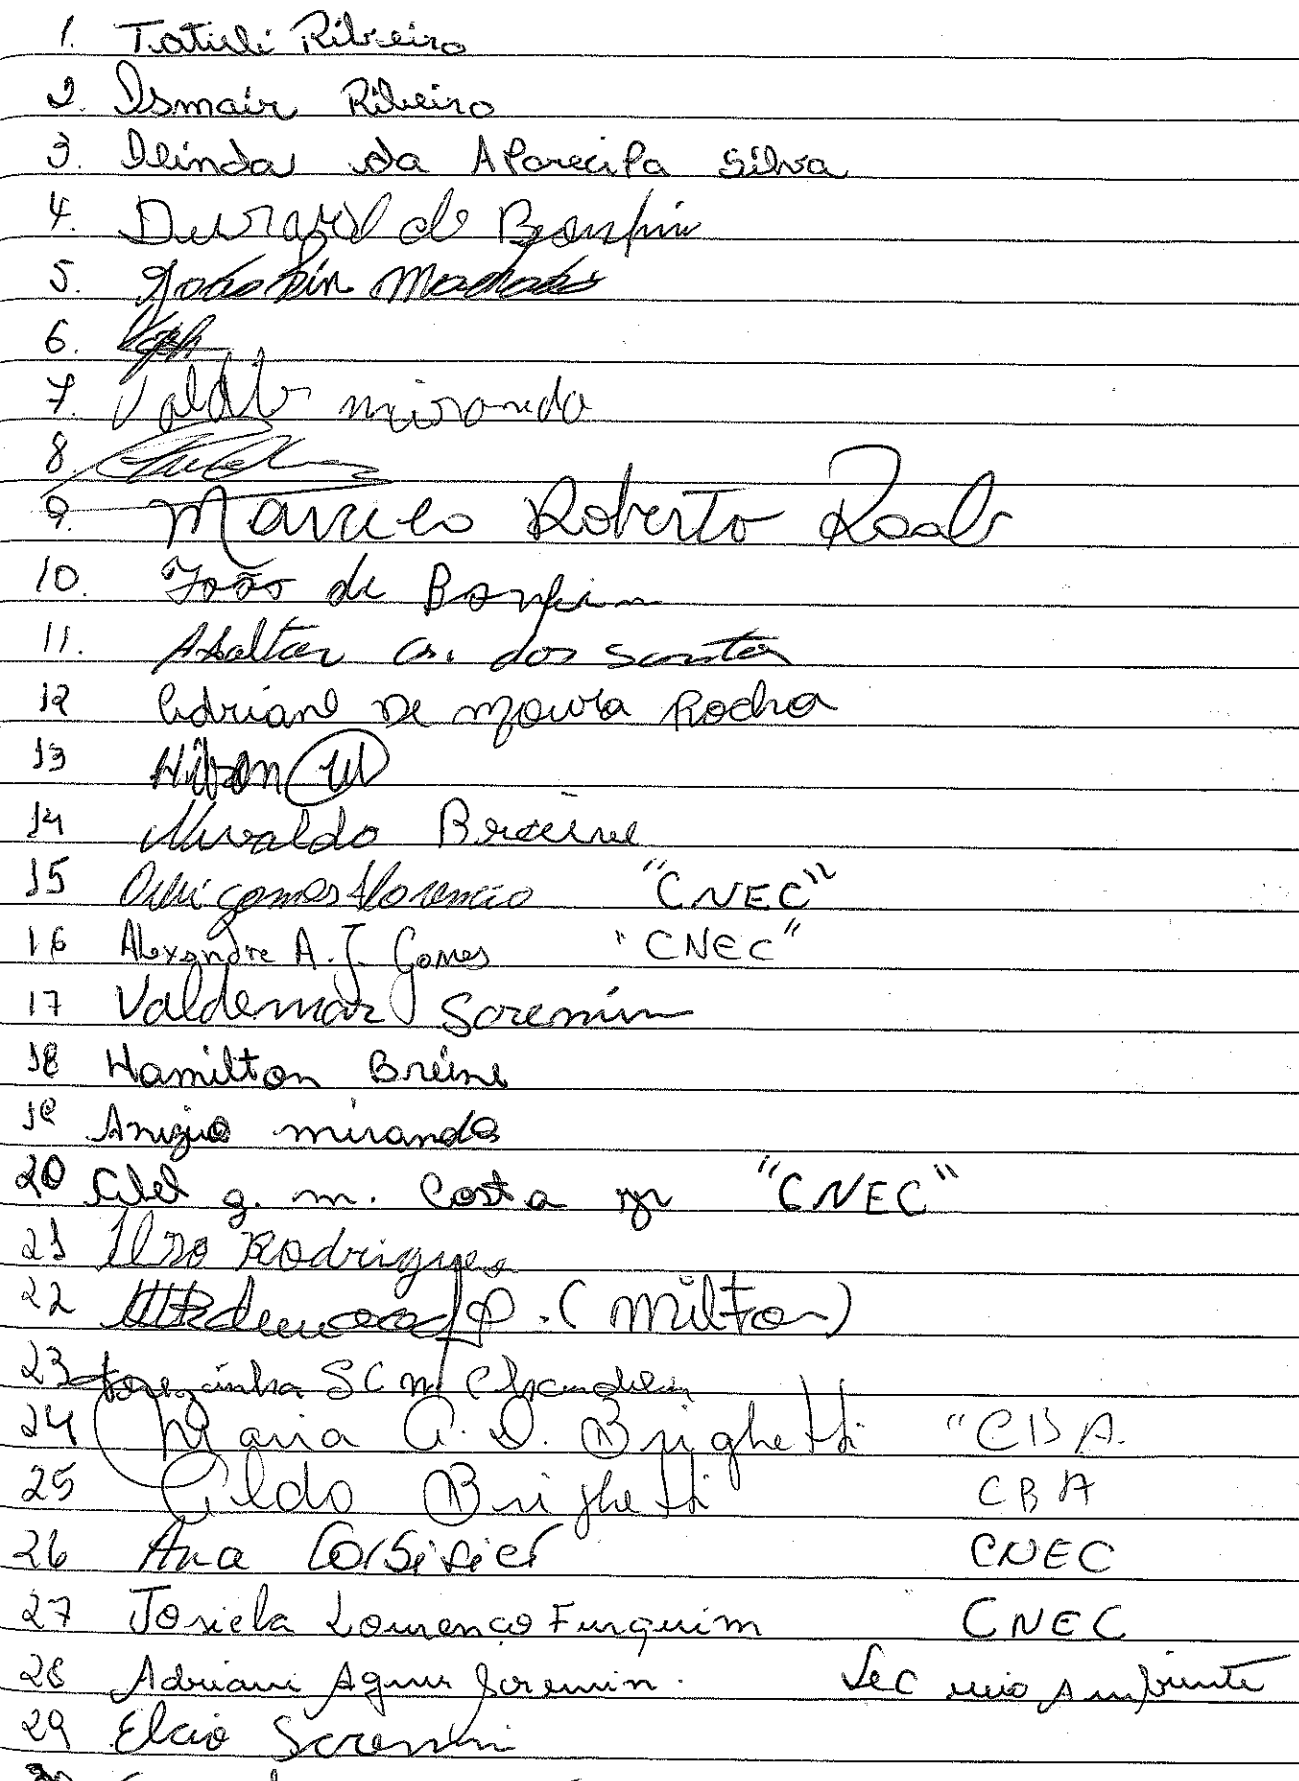 1. Tatieli Ribeiro
2. Ismair Ribeiro
3. Ilinda da Aparecipa Silva
4. Durazil de Bonfim
5. Machado
6.
7. Valdir miranda
8
9. Marcelo Roberto Raab
10. João de Bonfim
11. dos santos
12 Adriane De Moura Rocha
13 Nilson
14 Nivaldo Breine
15 gomes Florencio "CNEC"
16 Alexandre A. J. Gomes "CNEC"
17 Valdemar Scremin
18 Hamilton Breine
19 Anizio miranda
20 g. m. Costa jr "CNEC"
21 Ilzo Rodrigues
22 P. (Milton)
23 Terezinha S C M
24 Maria A. D. Brighetti "CBA.
25 Aldo Brighetti CBA
26 Ana CNEC
27 Josiela Lourenço Furquim CNEC
28 Adriani Agner Scremin. Sec meio Ambiente
29 Elcio Scremin